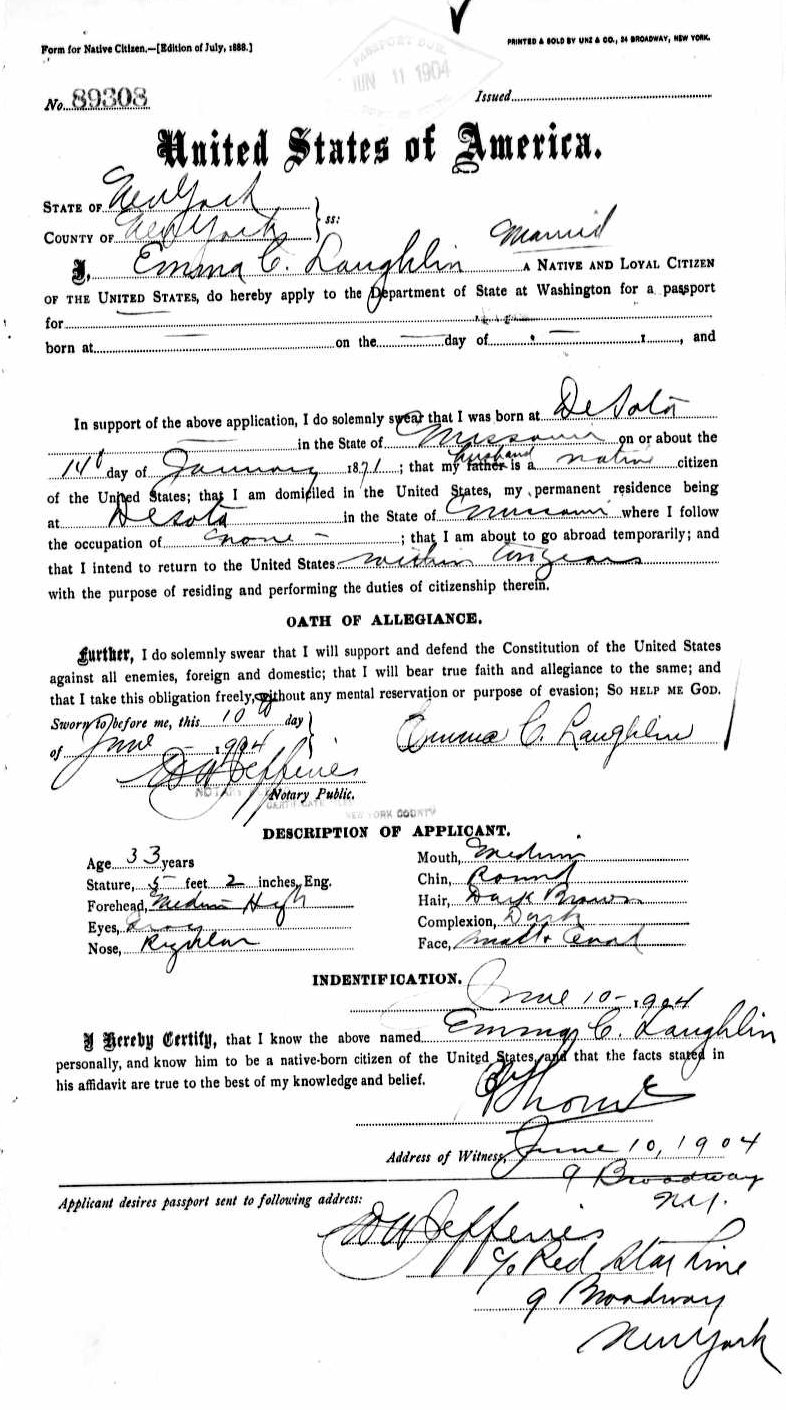 Form for Native Citizen.—[Edition of July, 1888.]
PRINTED & SOLD BY UNZ & CO., 24 BROADWAY, NEW YORK.
PASSPORT BUR.
JUN 11 1904
No. 89308
Issued
United States of America.
STATE OF New York
COUNTY OF New York } ss:
Married
I, Emma C. Laughlin a NATIVE AND LOYAL CITIZEN
OF THE UNITED STATES, do hereby apply to the Department of State at Washington for a passport
for
born at — on the — day of — 1 , and
In support of the above application, I do solemnly swear that I was born at DeSoto
in the State of Missouri on or about the
14th day of January 1871 ; that my father husband is a native citizen
of the United States; that I am domiciled in the United States, my permanent residence being
at Desoto in the State of Missouri where I follow
the occupation of none - ; that I am about to go abroad temporarily; and
that I intend to return to the United States within two years
with the purpose of residing and performing the duties of citizenship therein.
OATH OF ALLEGIANCE.
Further, I do solemnly swear that I will support and defend the Constitution of the United States
against all enemies, foreign and domestic; that I will bear true faith and allegiance to the same; and
that I take this obligation freely, without any mental reservation or purpose of evasion; SO HELP ME GOD.
Sworn to before me, this 10th day
of June - 1904
Emma C. Laughlin
D W Jefferies
Notary Public.
NEW YORK COUNTY
DESCRIPTION OF APPLICANT.
Age 33 years
Mouth, Medium
Stature, 5 feet 2 inches, Eng.
Chin, Round
Forehead, Medium High
Hair, Dark Brown
Eyes, Gray
Complexion, Dark
Nose, Regular
Face, Small &
INDENTIFICATION.
June 10 - 1904
I Hereby Certify, that I know the above named Emma C. Laughlin
personally, and know him to be a native-born citizen of the United States, and that the facts stated in
his affidavit are true to the best of my knowledge and belief.
Address of Witness, June 10, 1904
9 Broadway
N.Y.
Applicant desires passport sent to following address:
D W Jefferies
c/o Red Star Line
9 Broadway
New York